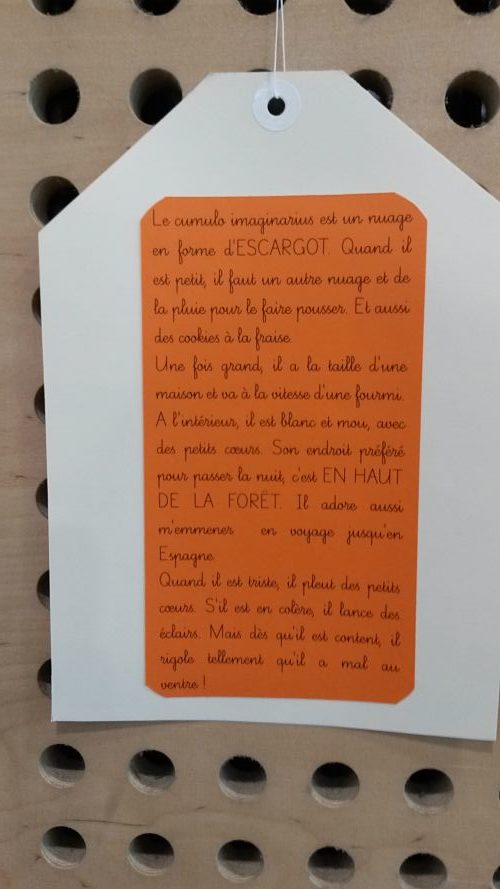 Le cumulo imaginarius est un nuage
en forme d'ESCARGOT. Quand il
est petit, il faut un autre nuage et de
la pluie pour le faire pousser. Et aussi
des cookies à la fraise.
Une fois grand, il a la taille d'une
maison et va à la vitesse d'une fourmi.
A l'intérieur, il est blanc et mou, avec
des petits cœurs. Son endroit préféré
pour passer la nuit, c'est EN HAUT
DE LA FORÊT. Il adore aussi
m'emmener en voyage jusqu'en
Espagne.
Quand il est triste, il pleut des petits
cœurs. S'il est en colère, il lance des
éclairs. Mais dès qu'il est content, il
rigole tellement qu'il a mal au
ventre !